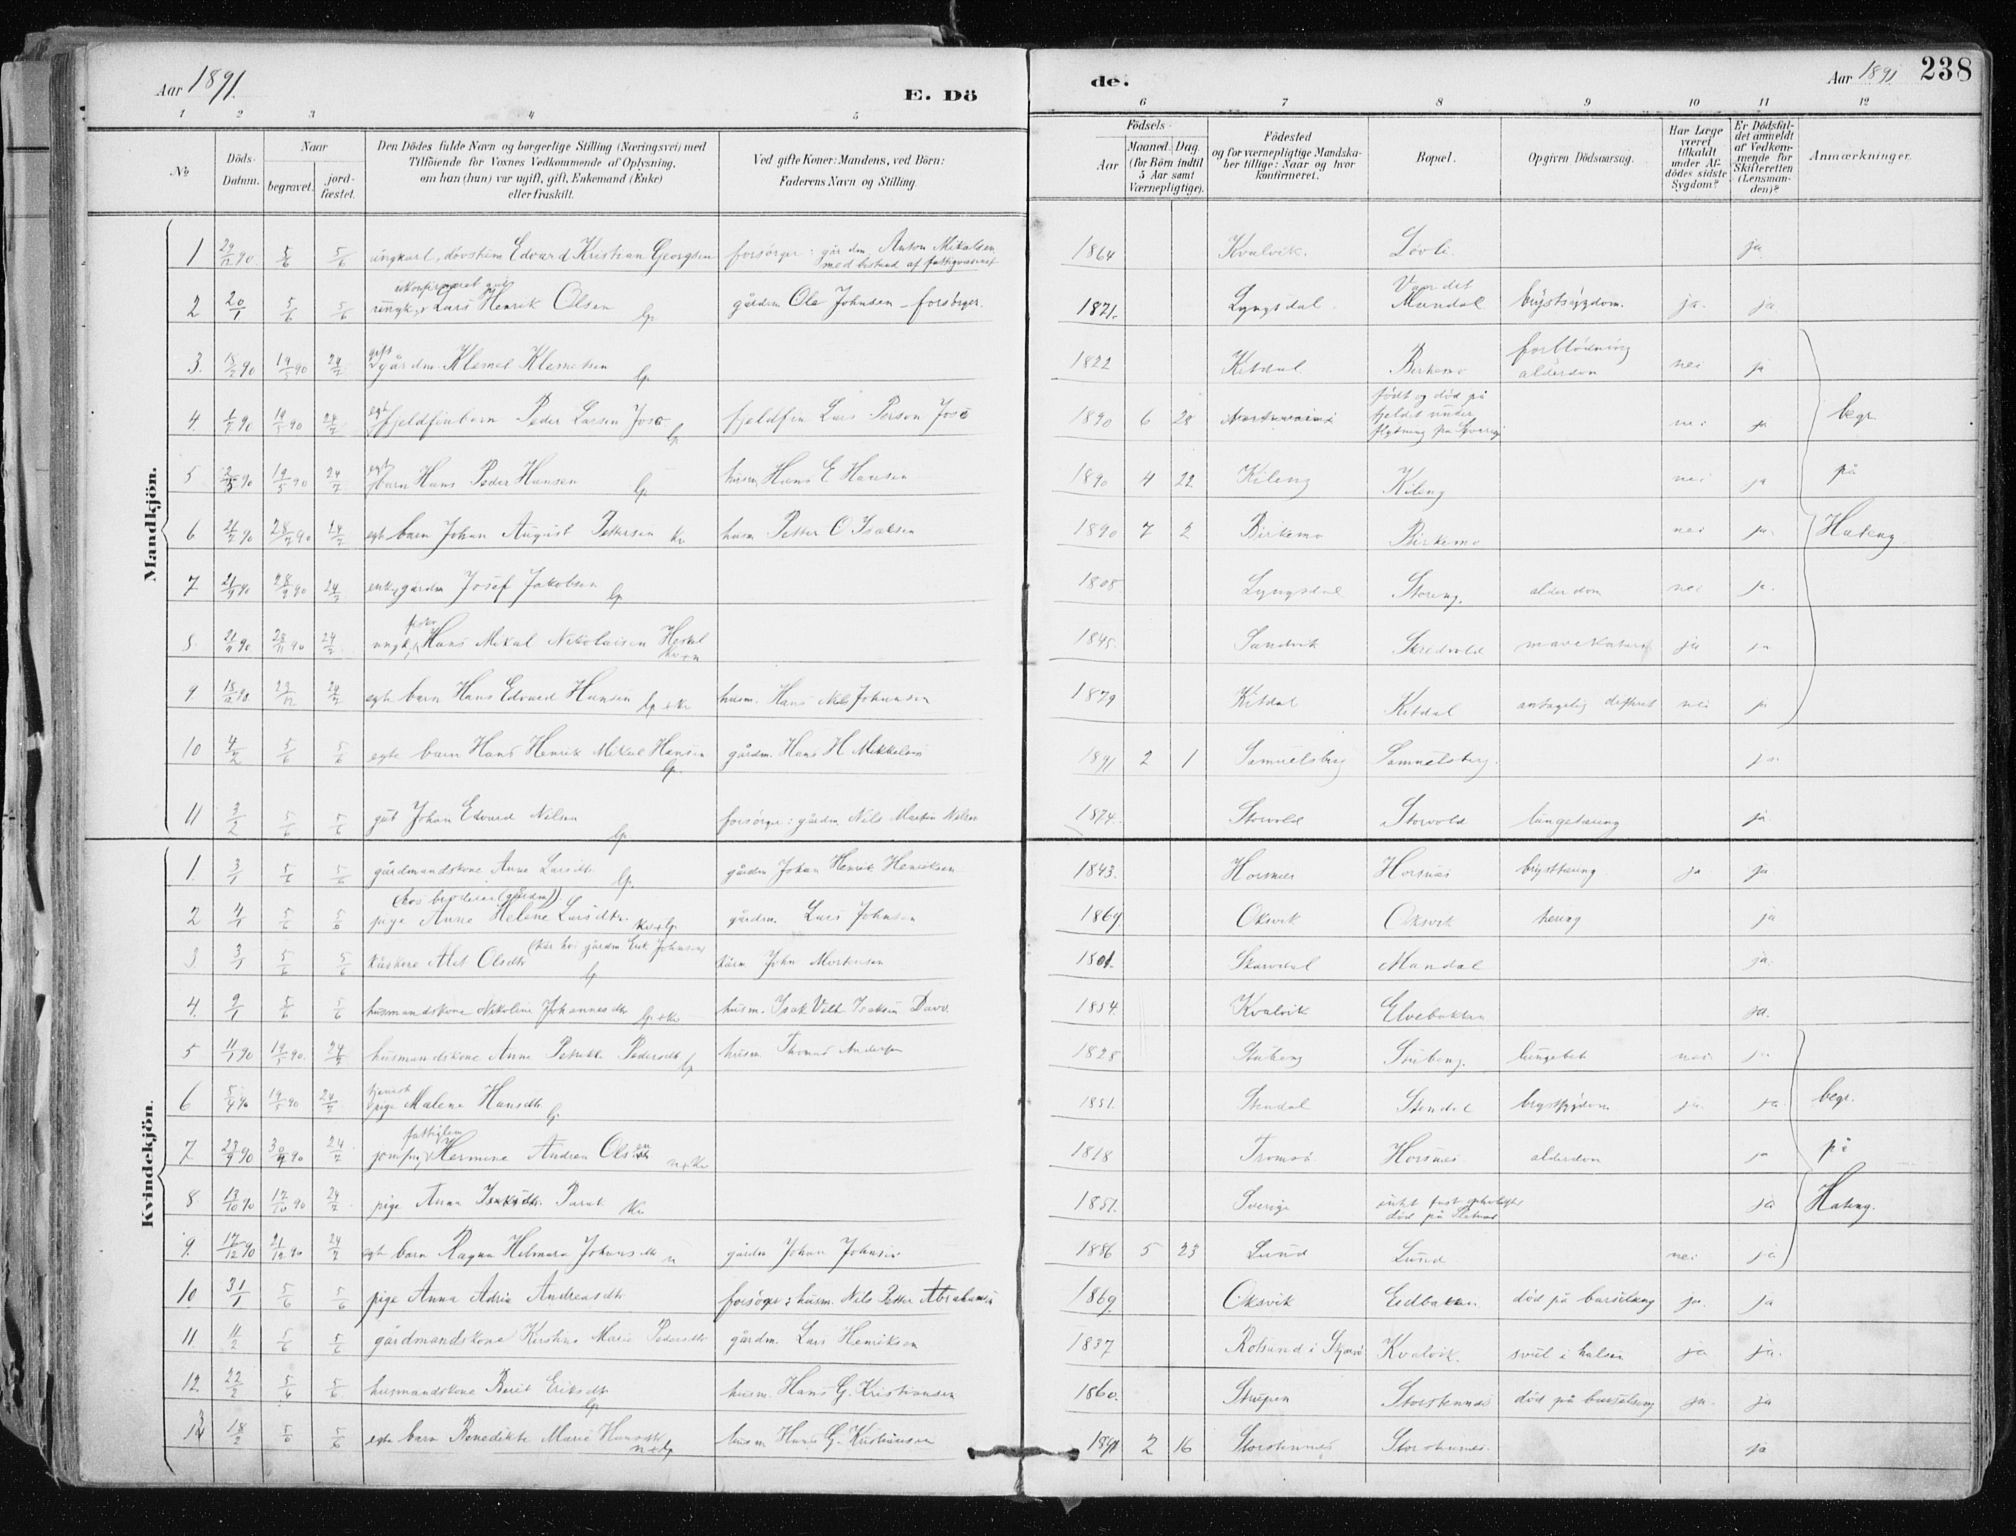 Aar 1891.
E. Dö
de.
Aar 1891
238
1 2 3 4 5 6 7 8 9 10 11 12
No
Döds-Datum.
Naar
begravet.
jordfæstet.
Den Dödes fulde Navn og borgerlige Stilling (Næringsvei) med
Tilföiende for Voxnes Vedkommende af Oplysning,
om han (hun) var ugift, gift, Enkemand (Enke)
eller fraskilt.
Ved gifte Koner: Mandens, ved Börn:
Faderens Navn og Stilling.
Födsels-
Aar
Maaned. Dag.
(for Börn indtil
5 Aar samt
Værnepligtige).
Födested
og for værnepligtige Mandska-
ber tillige: Naar og hvor
konfirmeret.
Bopæl.
Opgiven Dödsaarsag.
Har Læge
været
tilkaldt
under Af-
dödes sidste
Sygdom?
Er Dödsfal-
det anmeldt
af Vedkom-
mende for
Skifteretten
(Lensman-
den)?
Anmærkninger.
Mandkjön.
1 29/12 90 5/6 5/6 ungkarl, døvstum Edvard Kristian Georgsen forsørger: gårdm. Anton Mikalsen 1864 Kvalvik. Løvli. ja
med bistand af fattigvæsenet
2 20/1 5/6 5/6 ungk. Lars Henrik Olsen lp gårdm Ole Johnsen - forsørger. 1871. Lyngsdal Mandal brystsygdom. ja. ja
3. 90 19/5 90 24/2 gift gårdm. Klemet Klemetsen lp 1822 Kitdal Birkemo forblødning alderdom nei ja
4. 90 19/5 90 24/2 egte fjeldfinbarn Peder Larsen Joso lp fjeldfin Lars Person Joso 1890 6 28 født og død på fjeldet under flytning fra Sverrig nei ja begr.
5 90 19/5 90 24/2 egte barn Hans Peder Hansen lp husm Hans E Hansen 1890 4 22 Kileng Kileng nei ja på
6 90 90 24/2 egte barn Johan August Pettersen kv husm Petter O Isaksen 1890 7 2 Birkemo Birkemo nei ja. Hateng
7 90 90 24/2 enkem. gårdm Josef Jakobsen lp 1808 Lyngsdal Storeng. alderdom nei ja.
8. 90 90 24/2 ungk. Hans Mikal Nikolaisen 1845. Sandvik Skredvold mavekatarr ja ja
9 18/12 90. 24/2 egte barn Hans Edvard Hansen lp + kv husm. Hans Nils Johansen 1879 Kitdal Kitdal antagelig difterit nei ja
10 4/2 5/6 5/6 egte barn Hans Henrik Mikal Hansen lp. gårdm. Hans H Mikkelsen 1891 2 1 Samuelsberg Samuelsberg. ja
11 3/2 5/6 5/6 gut Johan Edvard Nilsen lp forsørger: gårdm Nils Martin Nilsen 1874. Storvold Storvold lungetæring ja
Kvindekjön.
1. 3/1 5/6 5/6 gårdmandskone Anne Larsdtr. lp. gårdm Johan Henrik Henriksen 1843. Horsnes Horsnes brysttæring ja ja
2 4/1 5/6 5/6 pige Anne Helene Larsdtr. kv + lp. gårdm. Lars Johnsen 1869 Oksvik Oksvik tæring ja
3 3/1 5/6 5/6 Alet Olsdtr (kår hos gårdm Erik Johnsen) lp kårm John Mortensen 1801. Skarvdal Mandal ja.
4. 9/1 5/6 5/6 husmandskone Nikoline Johannesdtr lp + kv husm. Isak Isaksen 1854 Kvalvik Elvebakken ja.
5 90 19/5 90. 24/2 husmandskone Anne Petrikke Pedersdtr lp husm Thomas Andersen 1828 Stubeng Stubeng. nei ja
6 5/4 90 19/5 90 24/2 tjenest pige Malene Hansdtr. lp 1851. Stendal Stendal brystsygdom ja. ja. begr.
7 23/9 90 90 24/2 fattiglem jomfru Hermine Andrea Olsen n + kv 1818 Tromsø Horsnes alderdom ja på
8 13/10 90 17/10 90 24/2 pige Anna kv 1851. Sverige intet fast opholdssted død på ja Hateng.
9. 17/12 90 21/12 90 24/2 egte barn Ragna Helmara Johansdtr n gårdm Johan Johnsen 1886 5 23 Lund Lund nei ja
10 31/1 5/6 5/6 pige Anna Adria Andreasdtr forsørger: husm. Nils Petter Abrahamsen 1869 Oksvik Eidbakken død på barselseng ja. ja
11 11/2 5/6 5/6 gårdmandskone Kirstine Marie Pedersdtr gårdm. Lars Henriksen 1837 Rotsund i Skjervø Kvalvik. svul i halsen ja ja.
12. 22/2 5/6 5/6 husmandskone Berit Eriksdtr lp husm. Hans G. Kristiansen 1860. Strupen Storstennes død på barselseng ja. ja
13 18/2 5/6 5/6 egte barn Benedikte Marie Hansdtr n + lp husm Hans G. Kristiansen 1891 2 16 Storstennes Storstennes. ja